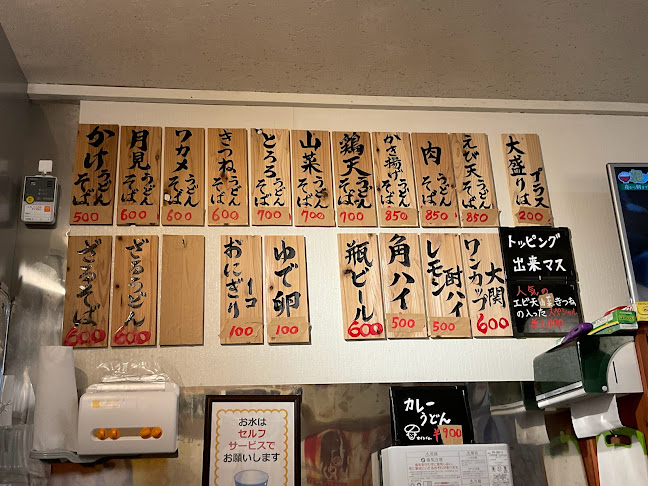 かけうどんそば 500
月見うどんそば 600
ワカメうどんそば 600
きつねうどんそば 600
とろろうどんそば 700
山菜うどんそば 700
鶏天うどんそば 700
かき揚げうどんそば 850
肉うどんそば 850
えび天うどんそば 850
大盛りはプラス 200
ざるそば 600
ざるうどん 600
おにぎり1コ 100
ゆで卵 100
瓶ビール 600
角ハイ 500
レモン酎ハイ 500
ワンカップ大関 600
トッピング
出来マス
人気の
エビ天山菜きつね
の入った
カレー
うどん
¥900
お水は
セルフ
サービスで
お願いします